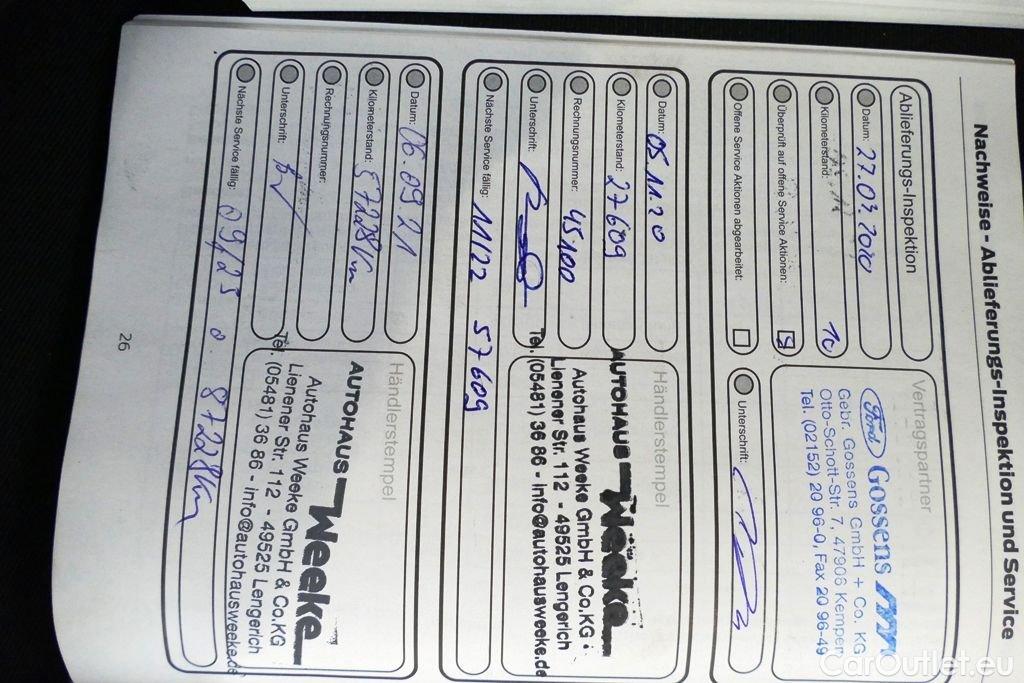 Nachweise - Ablieferungs-Inspektion und Service
Ablieferungs-Inspektion
Datum: 27.03.2020
Kilometerstand: 10
Überprüft auf offene Service Aktionen:
Offene Service Aktionen abgearbeitet:
Vertragspartner
Ford Gossens
Gebr. Gossens GmbH + Co. KG
Otto-Schott-Str. 7, 47906 Kempen
Tel. (02152) 20 96-0, Fax 20 96-49
Unterschrift:
Datum: 05.11.20
Kilometerstand: 27609
Rechnungsnummer: 45100
Unterschrift:
Nächste Service fällig: 11/22 57609
Händlerstempel
AUTOHAUS Weeke
Autohaus Weeke GmbH & Co.KG
Lienener Str. 112 - 49525 Lengerich
Tel. (05481) 36 86 - info@autohausweeke.de
Datum: 06.09.21
Kilometerstand: 57228Km
Rechnungsnummer:
Unterschrift:
Nächste Service fällig: 09/23 o. 87228Km
Händlerstempel
AUTOHAUS Weeke
Autohaus Weeke GmbH & Co.KG
Lienener Str. 112 - 49525 Lengerich
Tel. (05481) 36 86 - info@autohausweeke.de
26
CarOutlet.eu